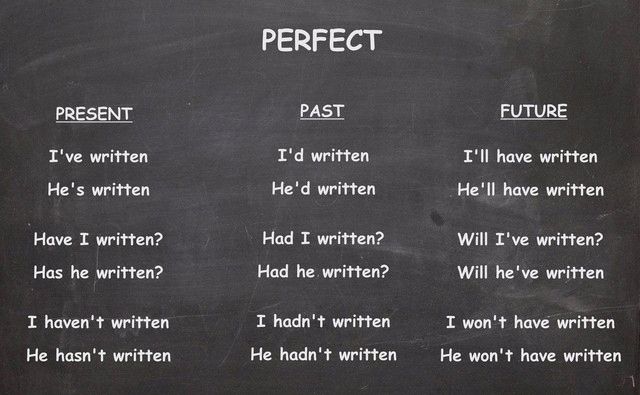 PERFECT
PRESENT PAST FUTURE
I've written I'd written I'll have written
He's written He'd written He'll have written
Have I written? Had I written? Will I've written?
Has he written? Had he written? Will he've written
I haven't written I hadn't written I won't have written
He hasn't written He hadn't written He won't have written